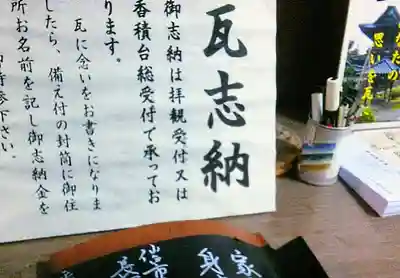 瓦志納
御志納は拝観受付又は
香積台総受付で承ってお
ります。
瓦に念いをお書きになりま
したら、備え付の封筒に御住
所お名前を記し御志納金を
御持参下さい。
なたの
思いを瓦
家
身